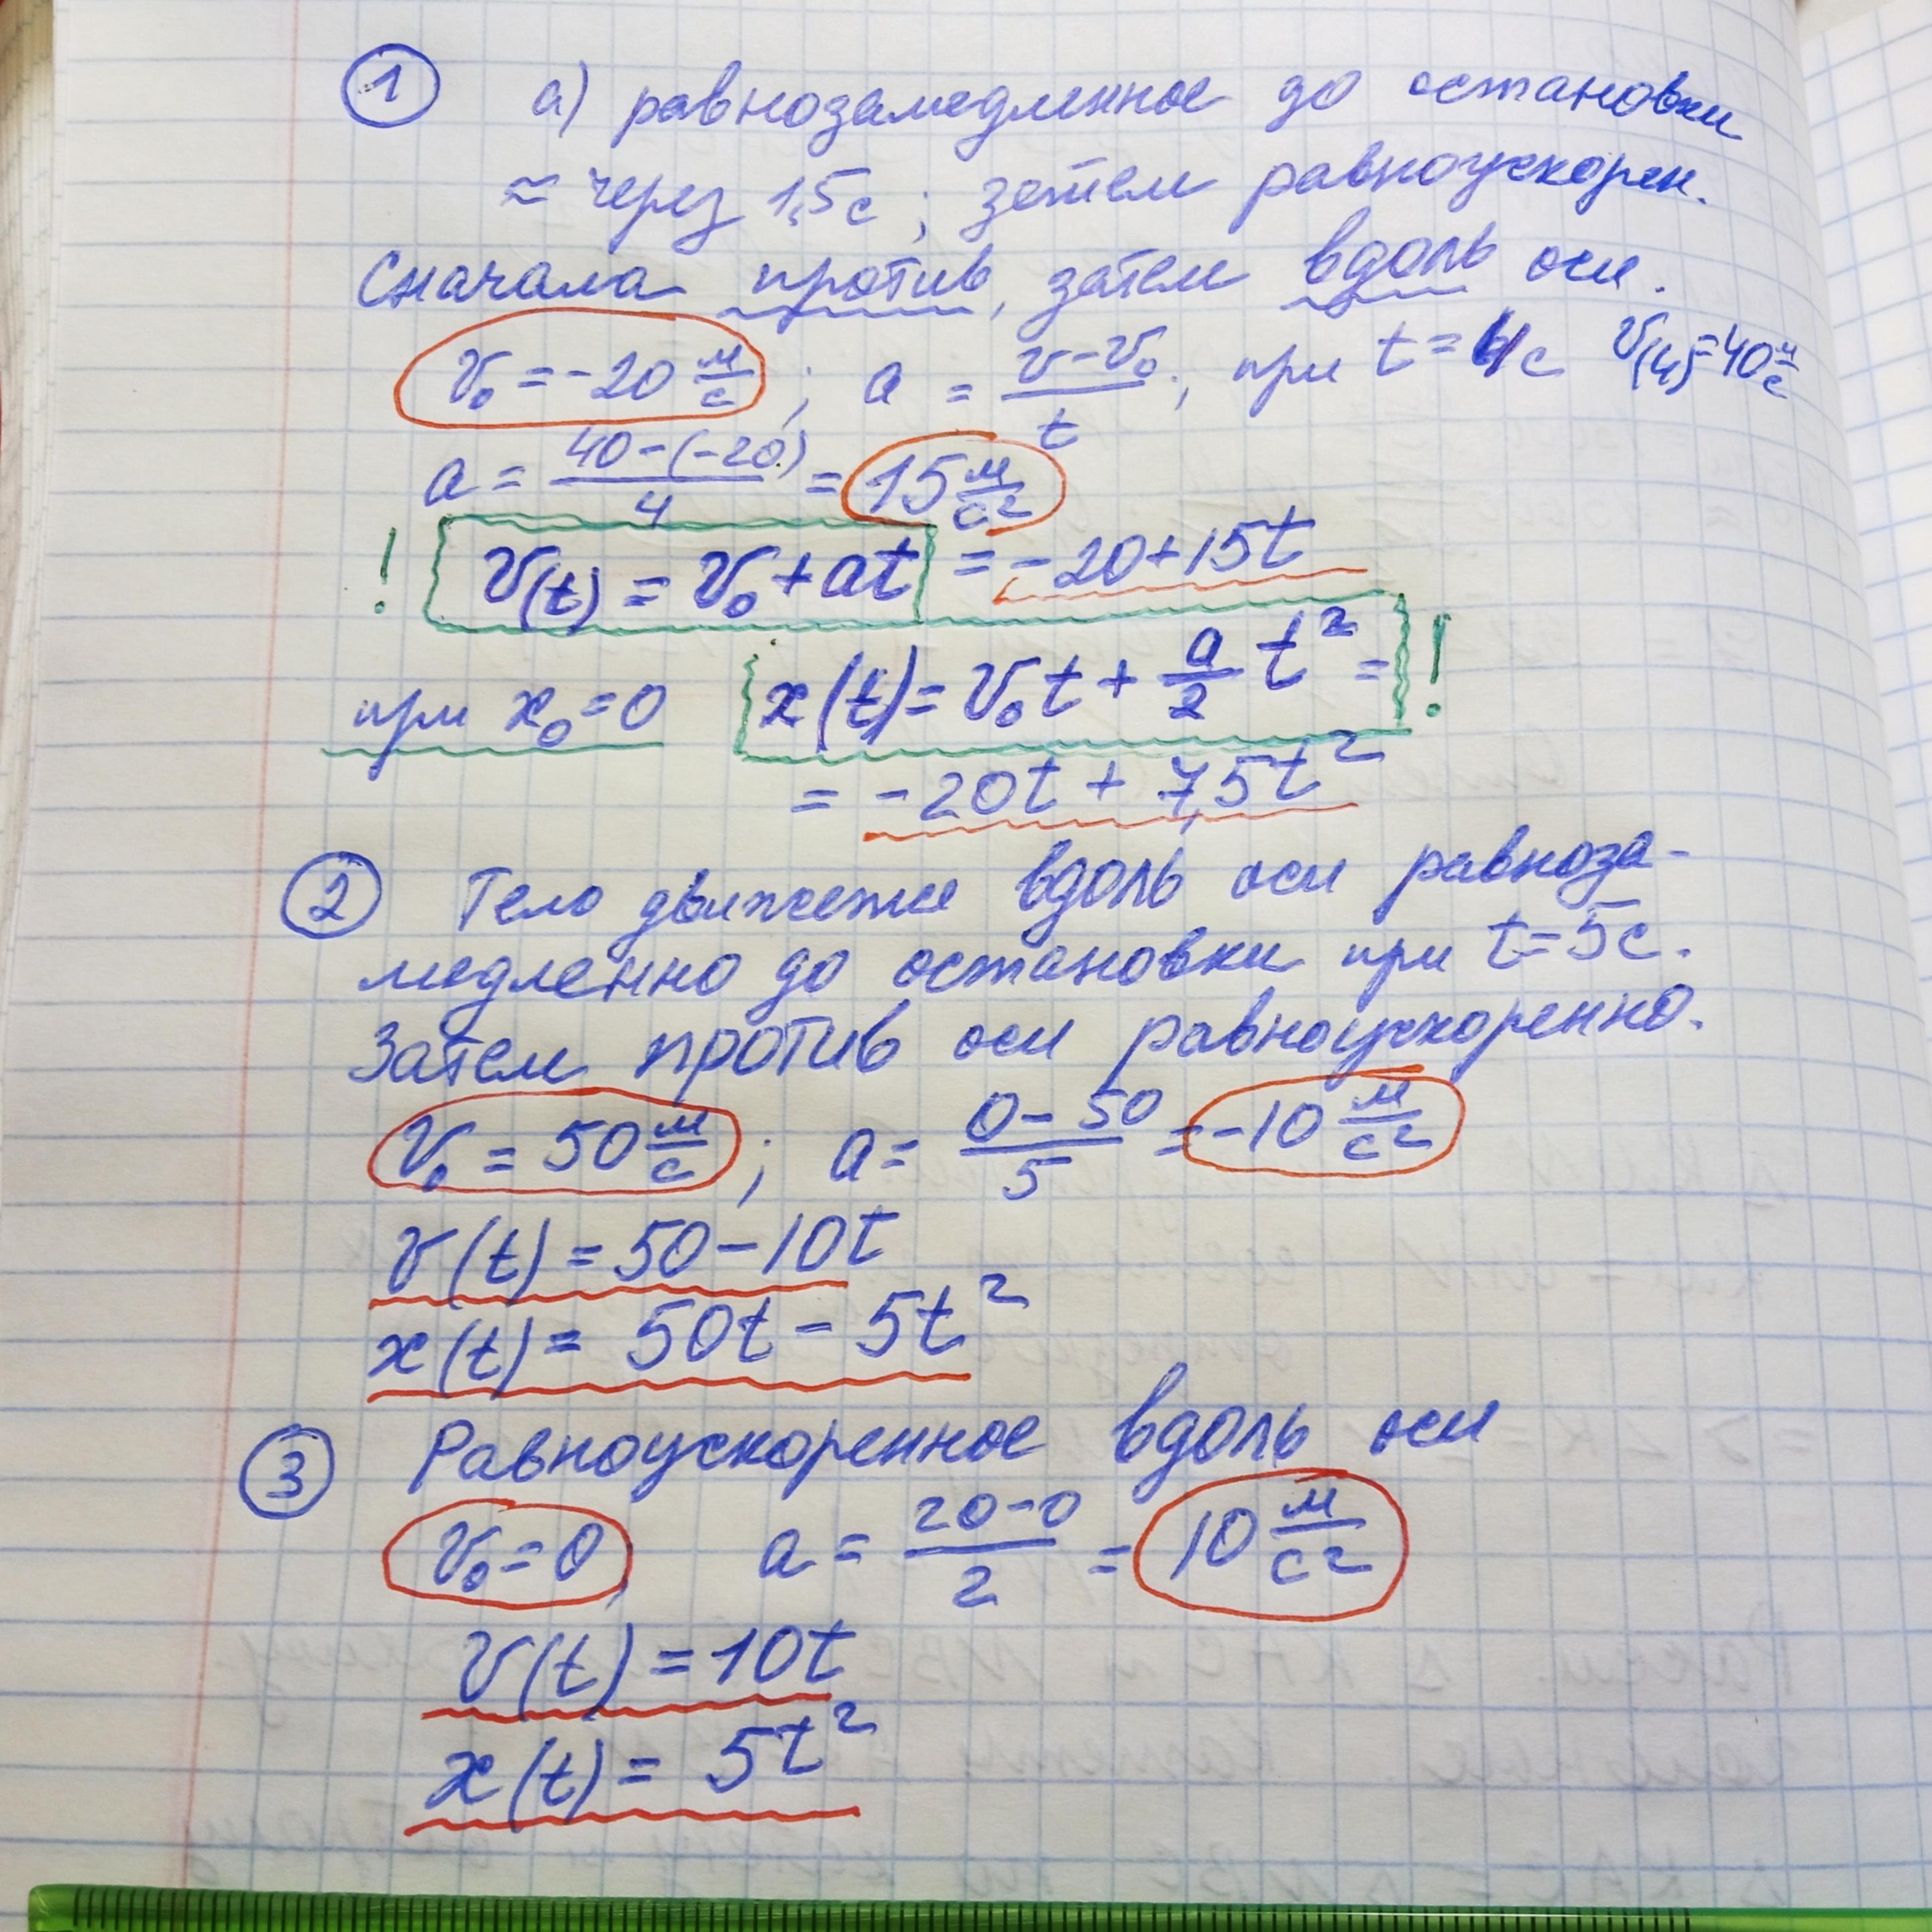 1 а) равнозамедленное до остановки
≈ через 1,5 с ; затем равноускорен.
Сначала против, затем вдоль оси.
v₀ = -20 м/с ; a = (v-v₀)/t ; при t = 4с v(4)=40 м/с
a = (40-(-20))/4 = 15 м/с²
! v(t) = v₀ + at = -20+15t
при x₀ = 0 x(t) = v₀t + a/2 t² = !
= -20t + 7,5t²
2 Тело движется вдоль оси равноза-
медленно до остановки при t=5с.
Затем против оси равноускоренно.
v₀ = 50 м/с ; a = (0-50)/5 = -10 м/с²
v(t) = 50-10t
x(t) = 50t - 5t²
3 Равноускоренное вдоль оси
v₀=0, a = (20-0)/2 = 10 м/с²
v(t) = 10t
x(t) = 5t²